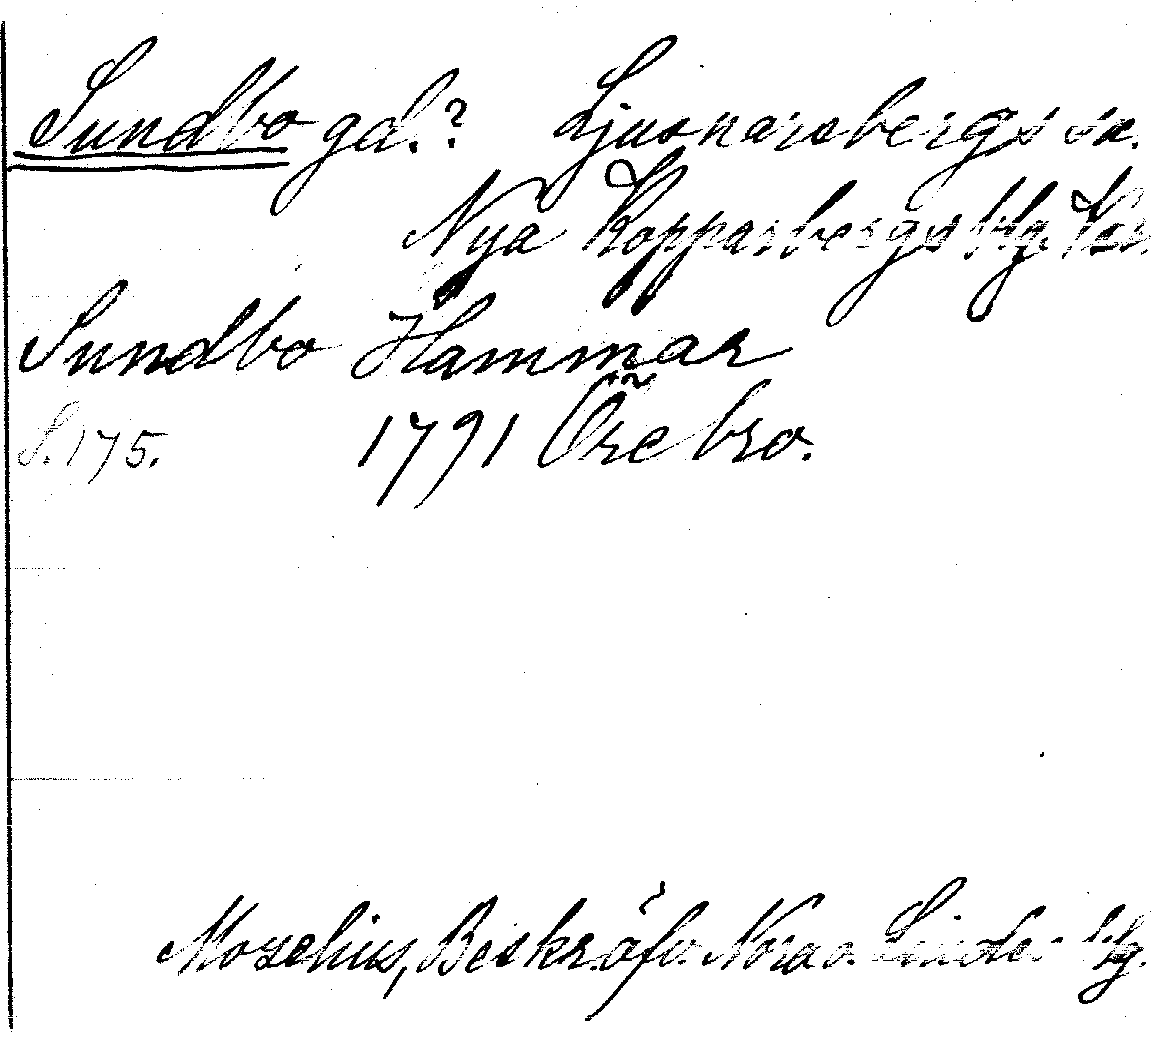 Sundbo gd.? Ljusnarsbergs sn.
Nya Kopparbergs blg. Vsm.
Sundbo Hammar
S. 175. 1791 Örebro.
Moschius, Beskr. öfv. Nora o. Linde blg.